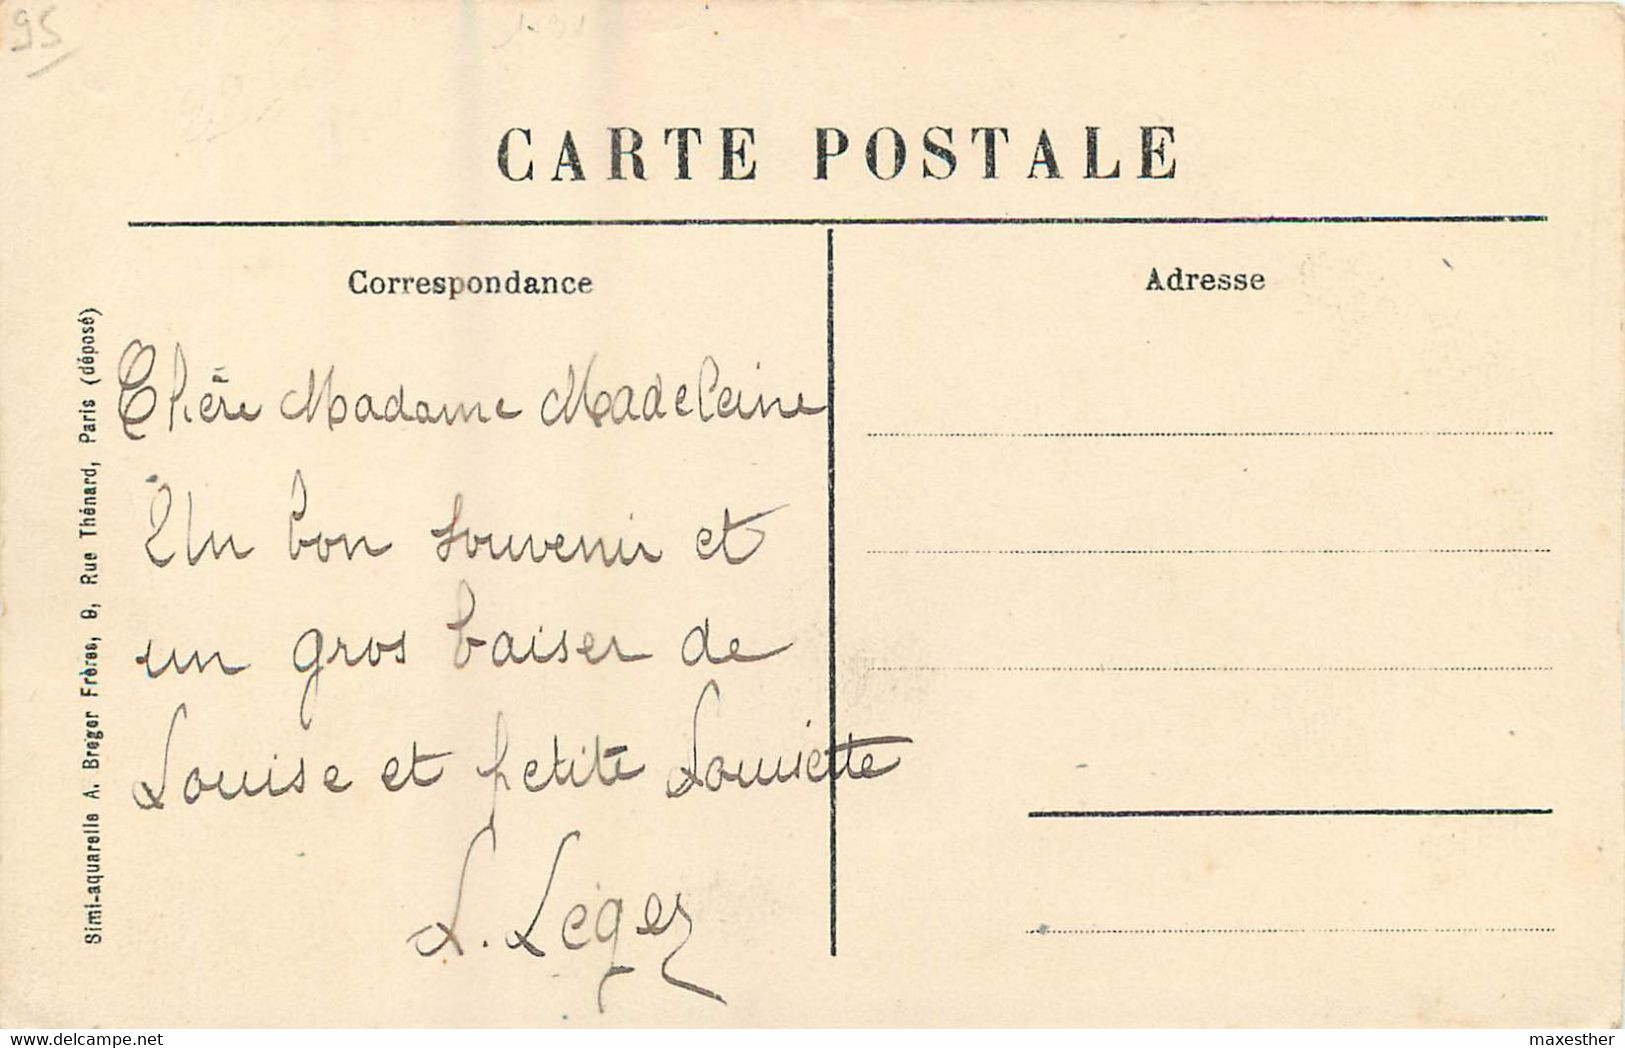 95
CARTE POSTALE
Correspondance
Adresse
Chère Madame Madeleine
Un bon souvenir et
un gros baiser de
Louise et petite Louisette
L. Léger
Simi-aquarelle A. Breger Frères, 9, Rue Thénard, Paris (déposé)
delcampe.net
maxesther